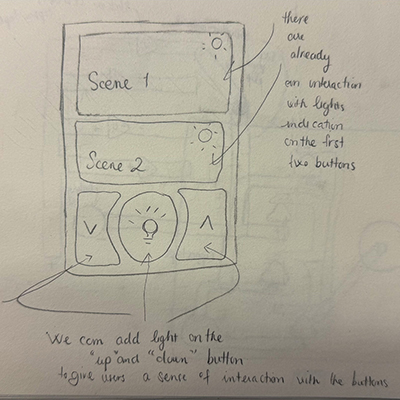 there
are
already
an interaction
with lights
indication
on the first
two buttons
Scene 1
Scene 2
We can add light on the
"up" and "down" button
to give users a sense of interaction with the buttons